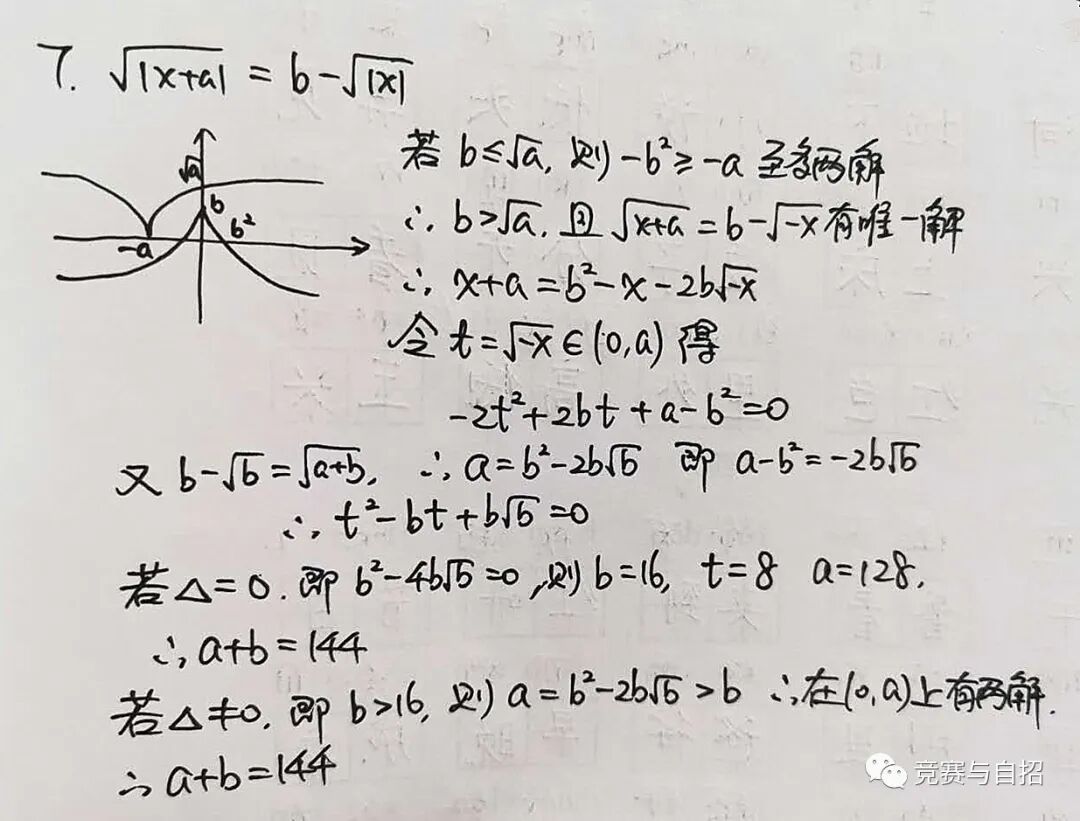 7. √|x+a| = b-√|x|
√a
b
b²
-a
若 b≤√a, 则 -b²≥-a 至多两解
∴ b>√a, 且 √x+a = b-√-x 有唯一解
∴ x+a = b²-x-2b√-x
令 t=√-x∈(0,a) 得
-2t²+2bt+a-b²=0
又 b-√b=√a+b, ∴ a=b²-2b√b 即 a-b²=-2b√b
∴ t²-bt+b√b=0
若△=0. 即 b²-4b√b=0, 则 b=16, t=8 a=128.
∴ a+b=144
若△≠0. 即 b>16, 则 a=b²-2b√b>b ∴在(0,a)上有两解.
∴ a+b=144
竞赛与自招